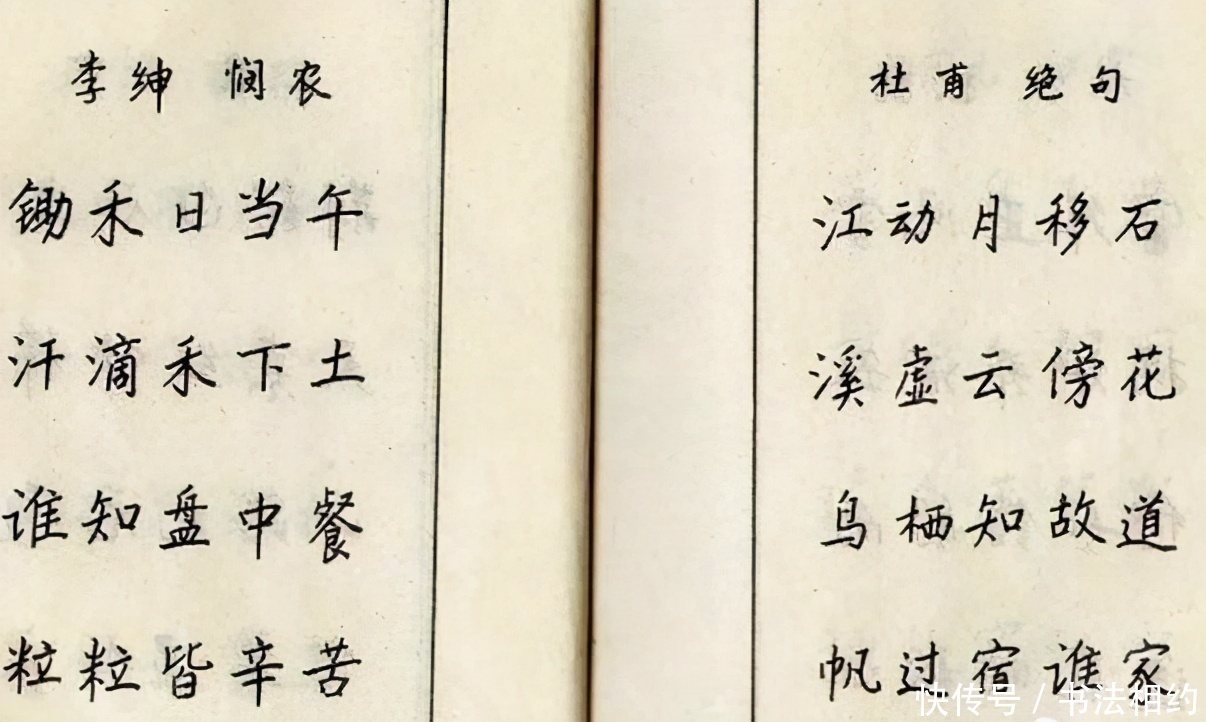 李绅 悯农
锄禾日当午
汗滴禾下土
谁知盘中餐
粒粒皆辛苦
杜甫 绝句
江动月移石
溪虚云傍花
鸟栖知故道
帆过宿谁家
快传号 / 书法相约